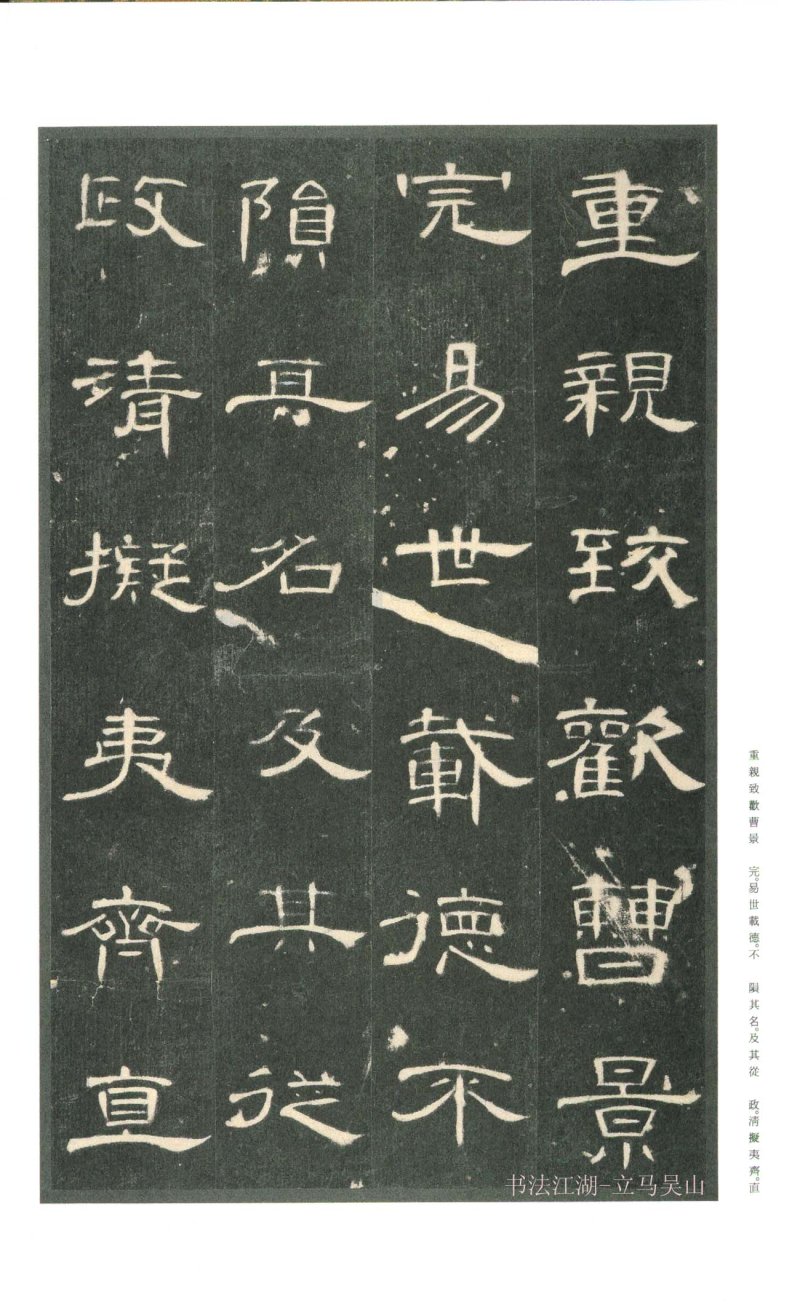 重親致歡曹景
完易世載德不
隕其名及其從
政清擬夷齊直
重親致歡曹景 完。易世載德。不 隕其名。及其從 政。清擬夷齊。直
书法江湖-立马吴山